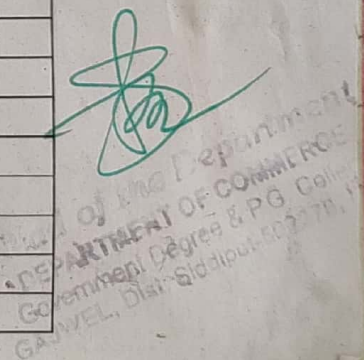 Head of the Department
DEPARTMENT OF COMMERCE
Government Degree & PG College
GAJWEL, Dist-Siddipet-502278,